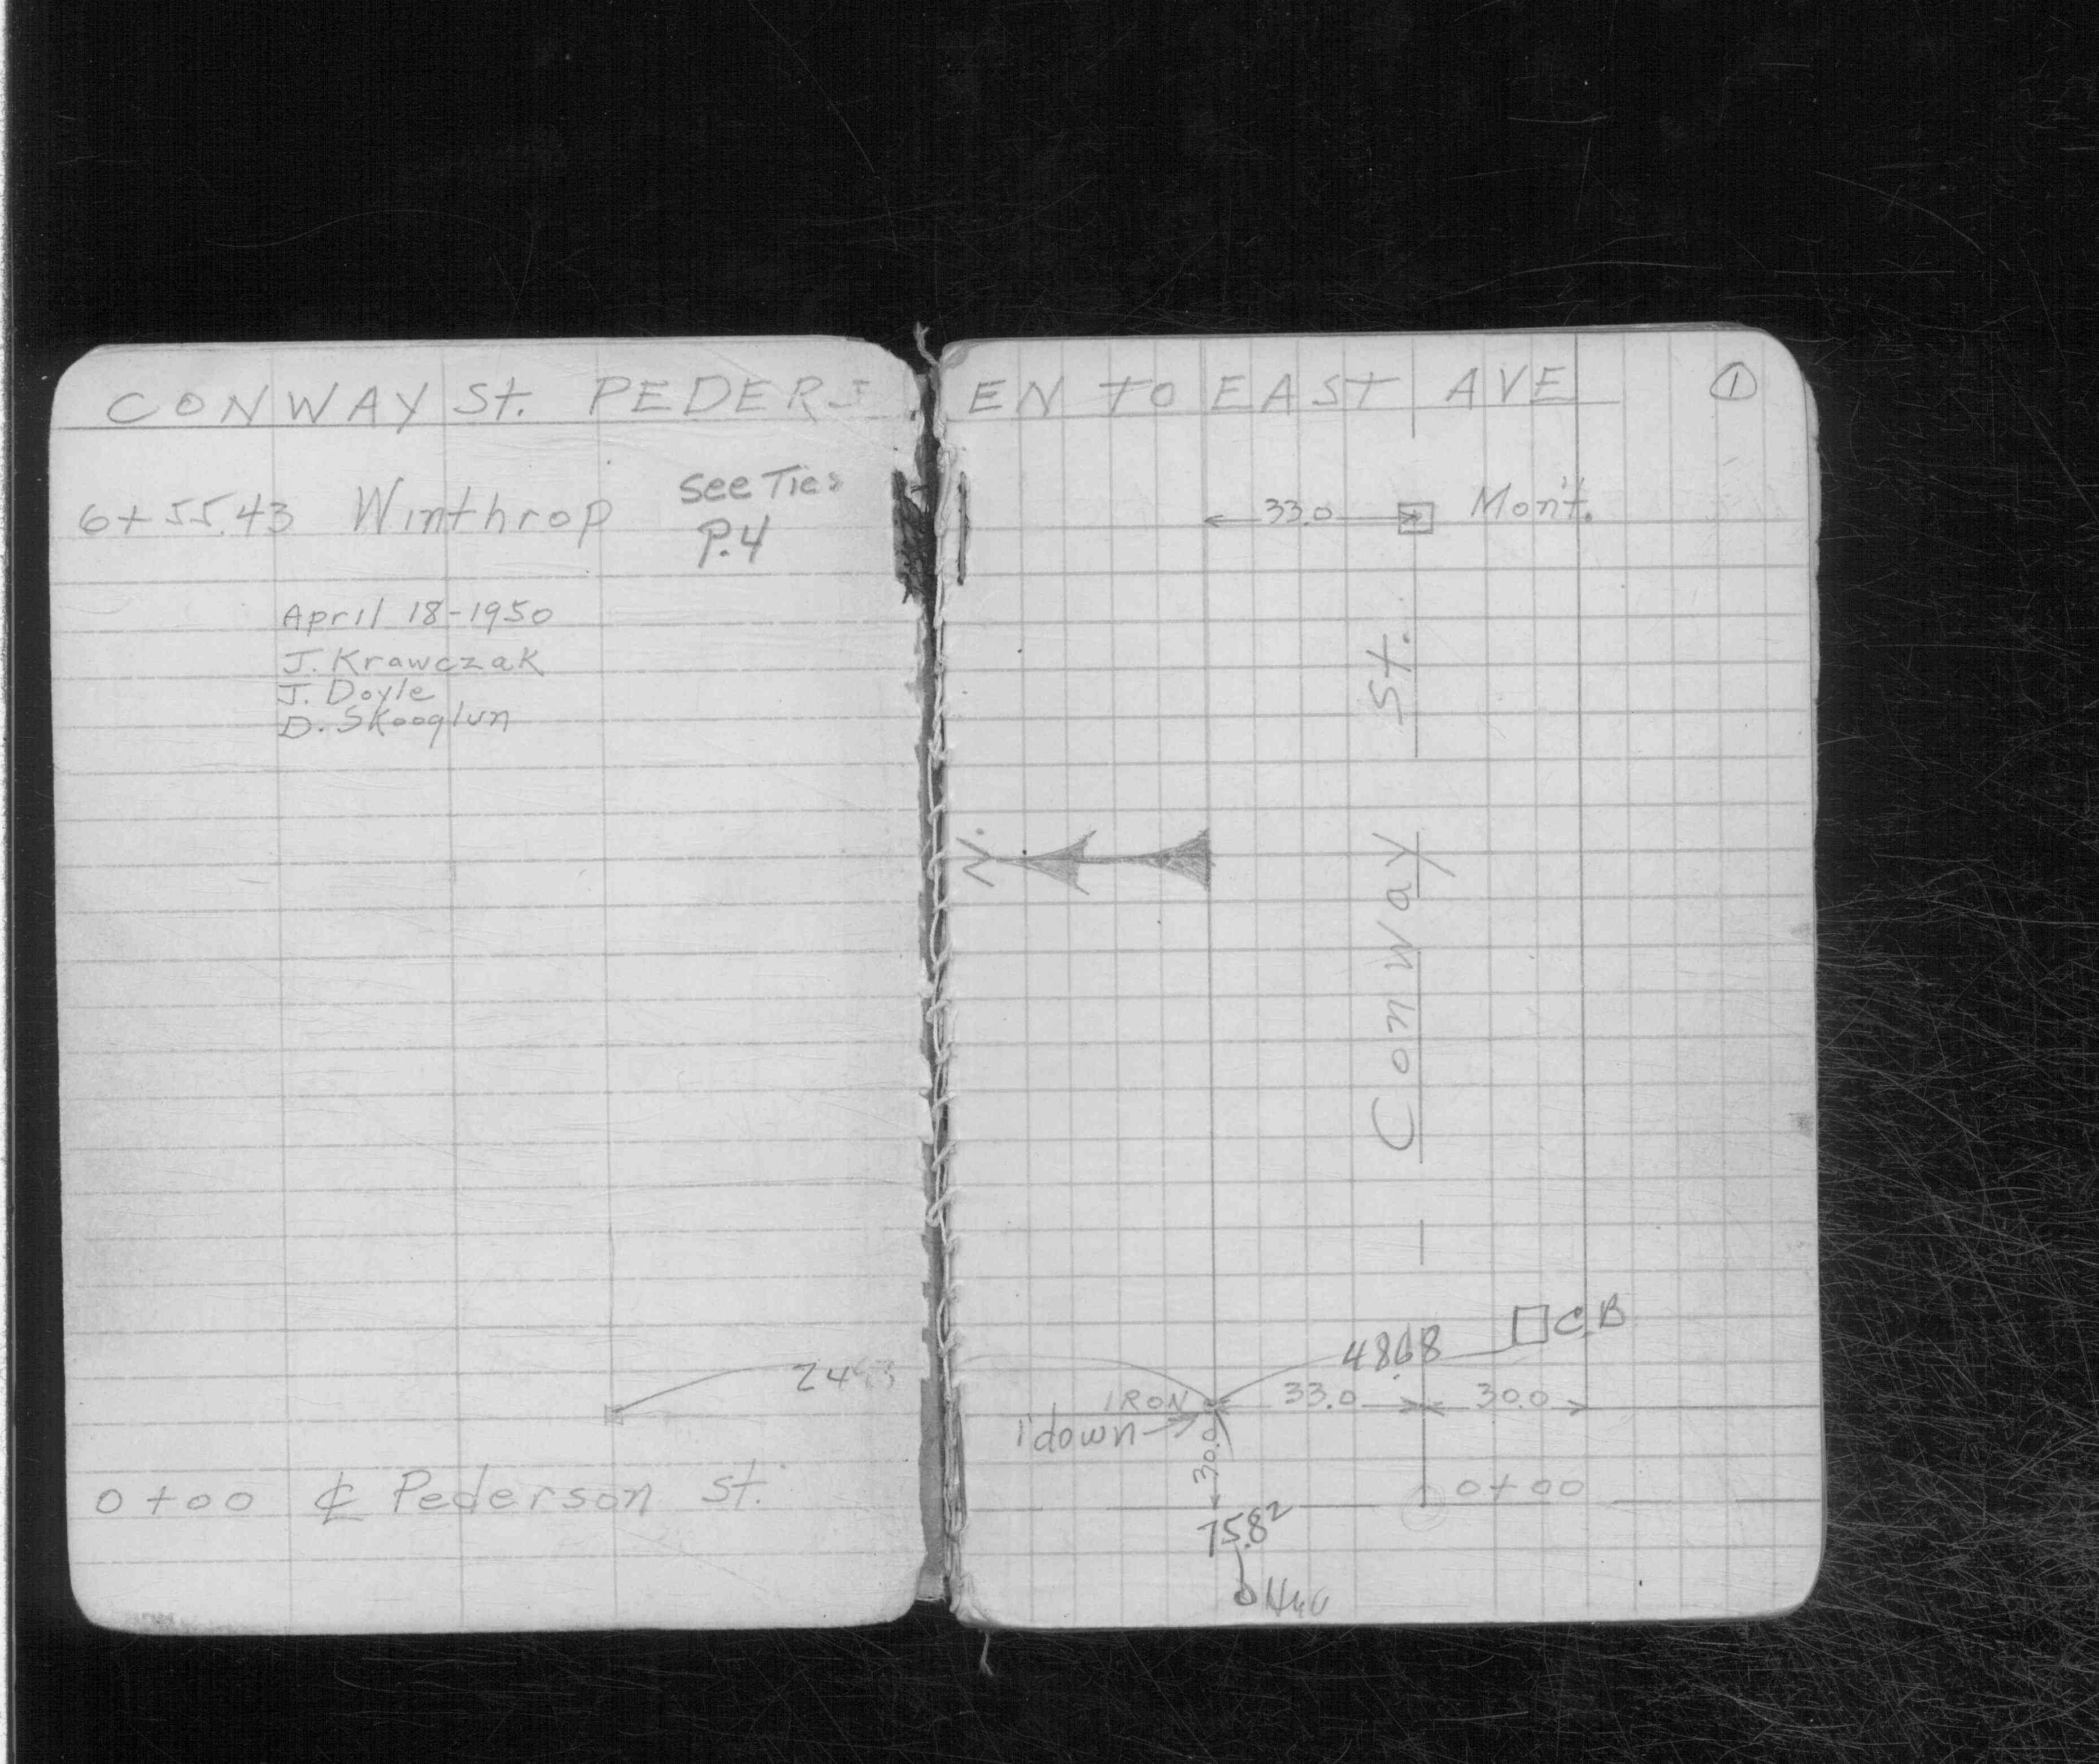 CONWAY St. PEDERSEN TO EAST AVE
1
6+55.43 Winthrop
See Ties
P.4
April 18-1950
J. Krawczak
J. Doyle
D. Skooglun
33.0
Mon't.
St.
N.
Conway
CB
48.68
IRON
33.0
30.0
1' down
30.0
0+00 ℄ Pederson St.
0+00
75.82